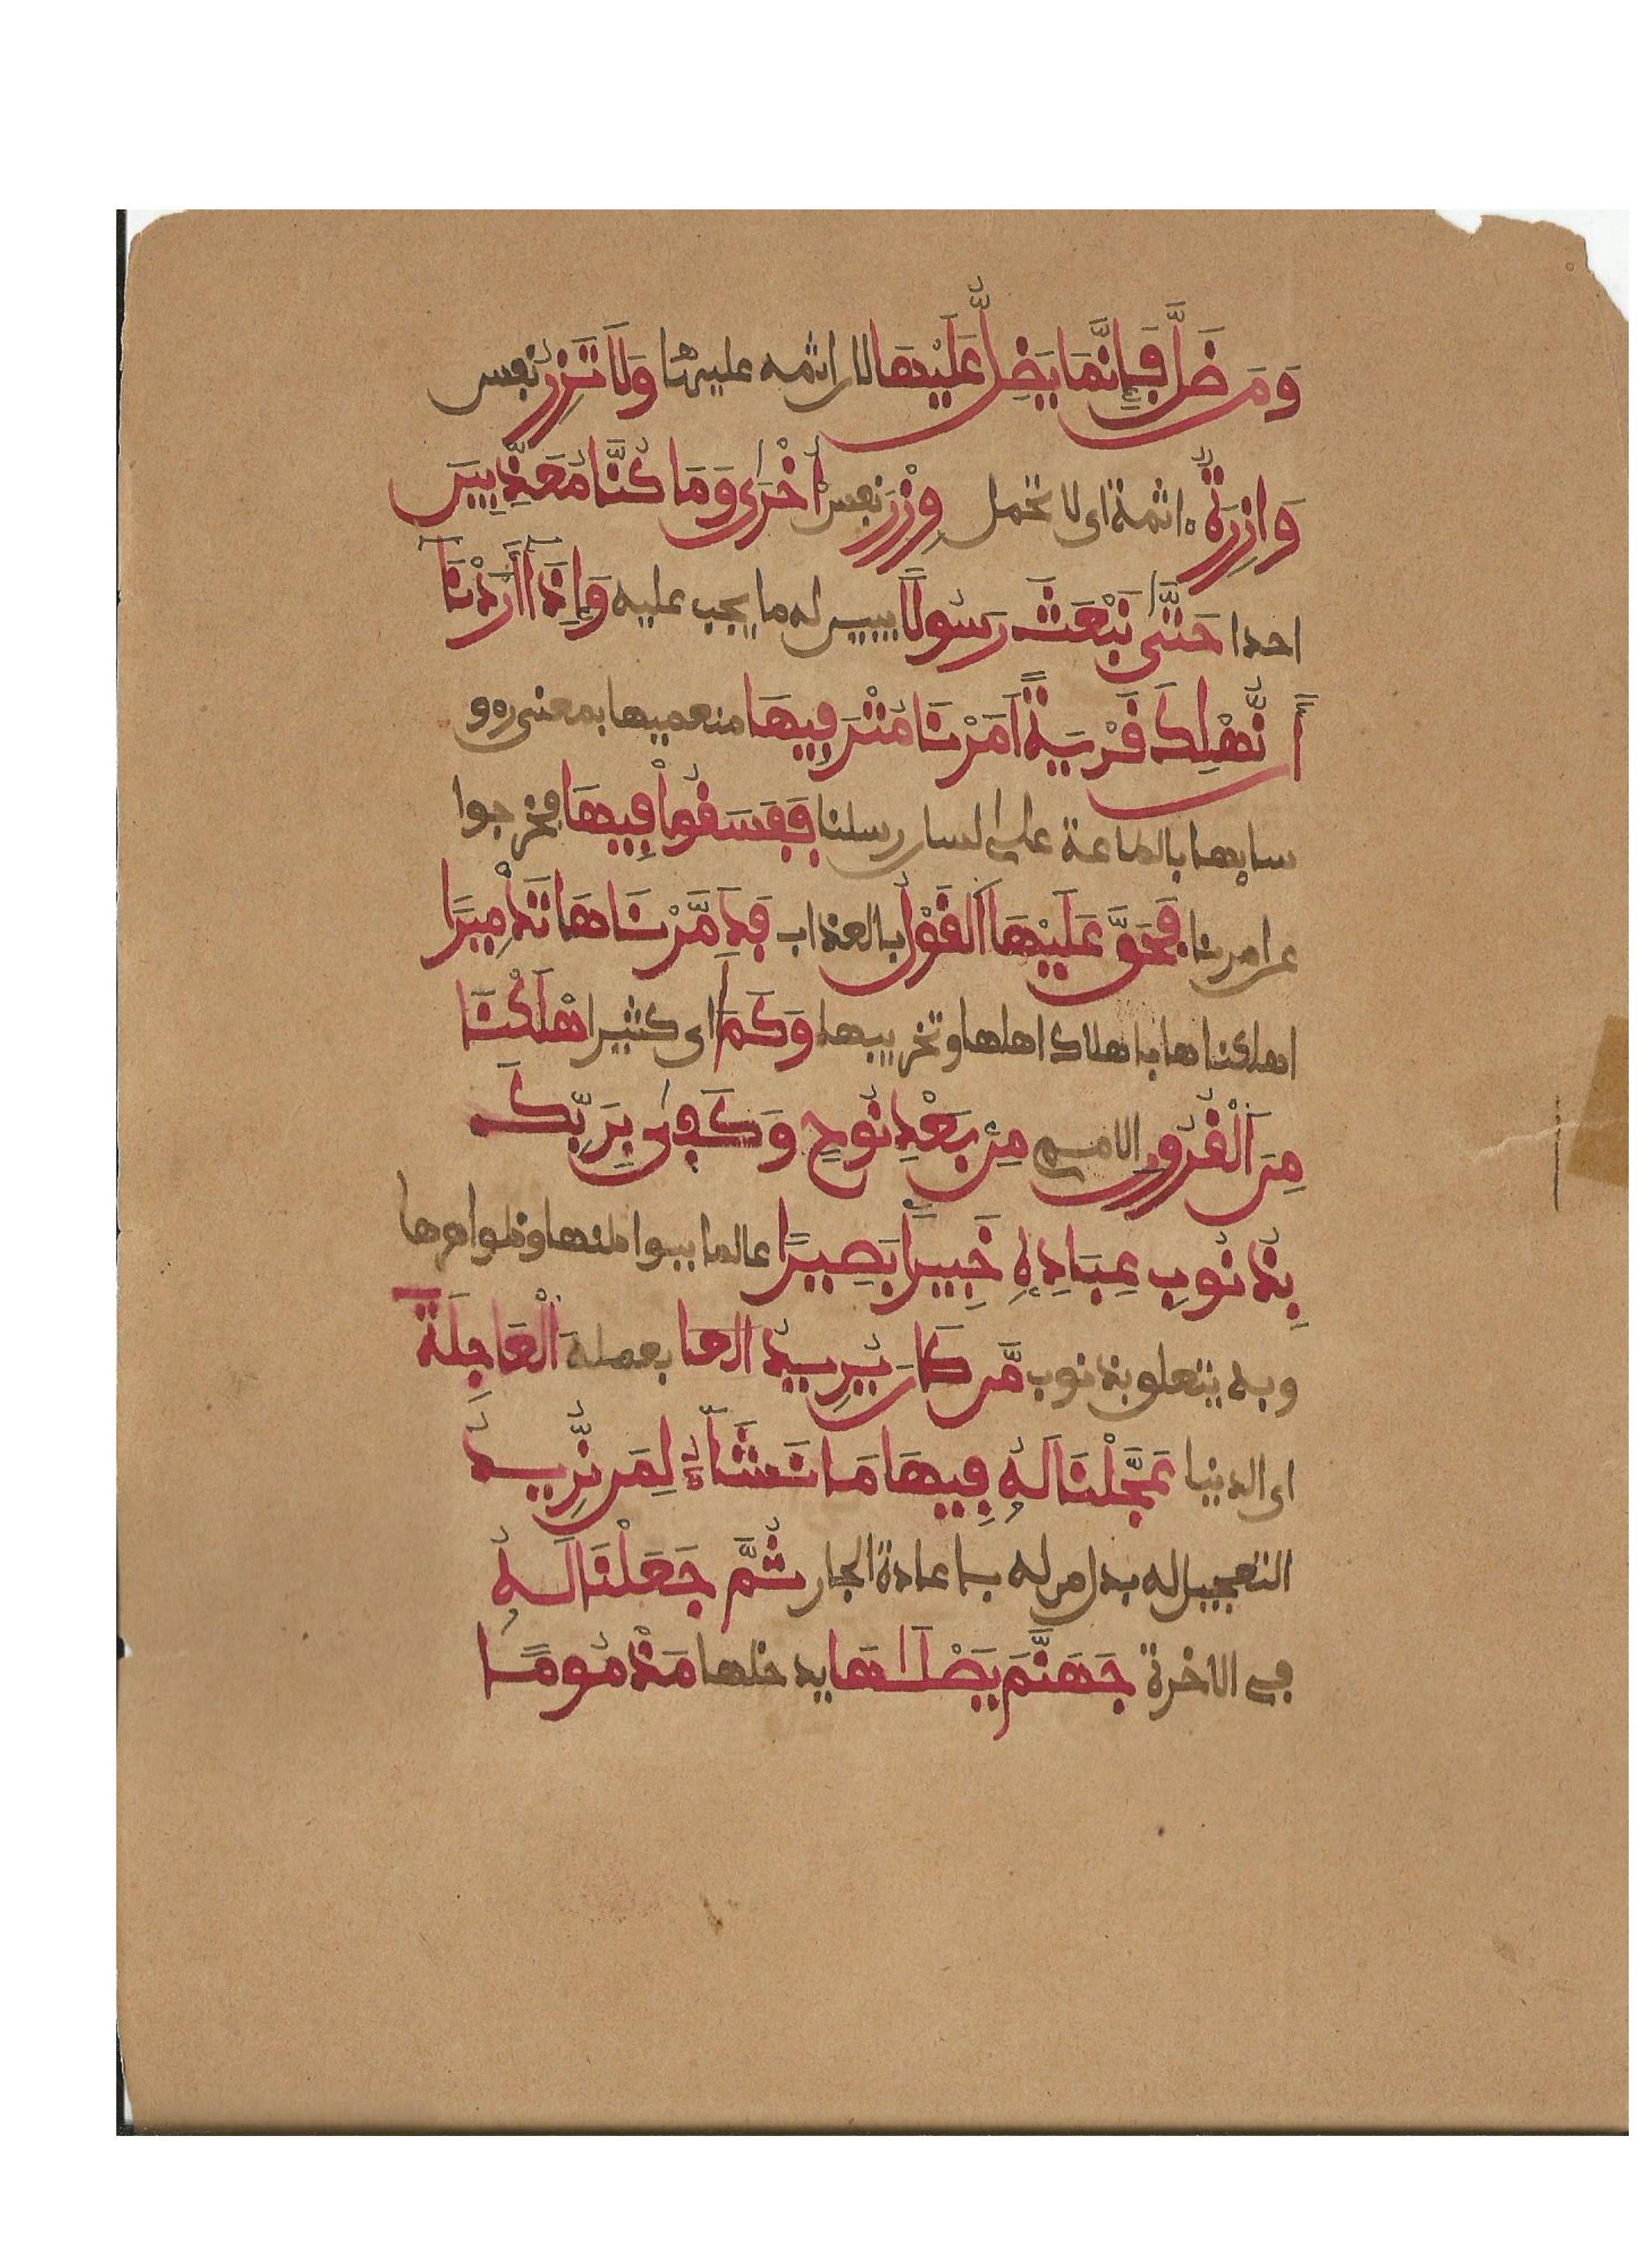 وَمَن ضَلَّ فَإِنَّمَا يَضِلُّ عَلَيْهَا لان اثمه عليها وَلَا تَزِرُ نفس
وَازِرَةٌ ءاثمة اى لا تحمل وِزْرَ نفس اُخْرَىٰ وَمَا كُنَّا مُعَذِّبِينَ
احدا حَتَّىٰ نَبْعَثَ رَسُولًا يبين له ما يجب عليه وَإِذَا أَرَدْنَا
أَن نُّهْلِكَ قَرْيَةً اَمَرْنَا مُتْرَفِيهَا منعميها بمعنى رءو
سايها بالطاعة على لسان رسلنا فَفَسَقُواْ فِيهَا فخرجوا
عن امرنا فَحَقَّ عَلَيْهَا اَلْقَوْلُ بالعذاب فَدَمَّرْنَاهَا تَدْمِيرًا
اهلكناها باهلاك اهلها وتخريبها وَكَمَ اى كثيرا اهْلَكْنَا
مِنَ اَلْقُرُونِ الامم مِنۢ بَعْدِ نُوحٍ وَكَفَىٰ بِرَبِّكَ
بِذُنُوبِ عِبَادِهِ خَبِيرًا بَصِيرًا عالما ببواطنها وظواهرها
وبه يتعلق بذنوب مَّن كَانَ يُرِيدُ العا بعملة اَلْعَاجِلَةَ
اى الدنيا عَجَّلْنَا لَهُ فِيهَا مَا نَشَآءُ لِمَن نُّرِيدُ
التعجيل له بدل من له باعادة الجار ثُمَّ جَعَلْنَا لَهُ
في الاخرة جَهَنَّمَ يَصْلَىٰهَا يدخلها مَذْمُومًا